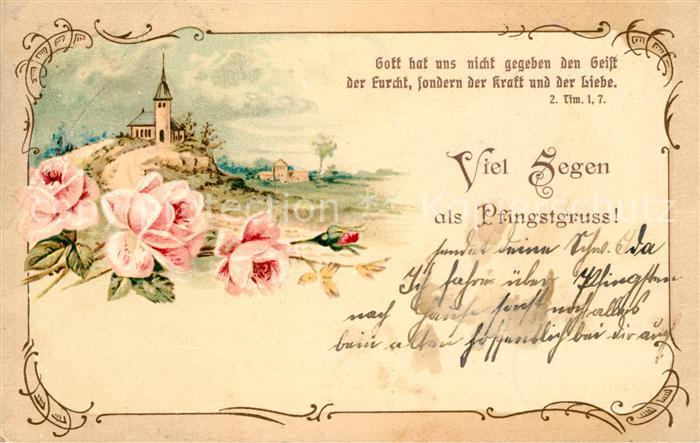 Gott hat uns nicht gegeben den Geist
der Furcht, sondern der Kraft und der Liebe.
2. Tim. 1, 7.
Viel Segen
als Pfingstgruss!
sendet deine Schw. Ida
Ich fahre über Pfingsten
nach Hause sonst noch alles
beim alten hoffentlich bei dir auch